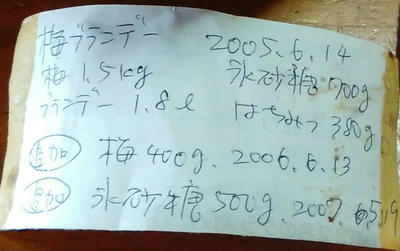 梅ブランデー 2005.6.14
梅 1.5kg 氷砂糖 700g
ブランデー 1.8ℓ はちみつ 380g
追加 梅400g. 2006.6.13
追加 氷砂糖 500g. 2007. 5.19